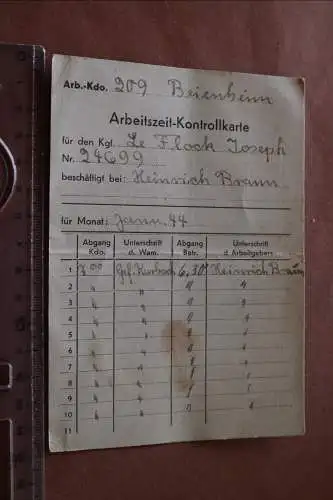 Arb.-Kdo. 209 Beienheim
Arbeitszeit-Kontrollkarte
für den Kgf. Le Flock Joseph
Nr. 24699
beschäftigt bei: Heinrich Braun
für Monat: Jann. 44
Abgang Kdo. Unterschrift d. Wam. Abgang Betr. Unterschrift d. Arbeitgebers
1 7⁰⁰ Gef. 6,30 Heinrich Braun
2 " " " "
3 " " " "
4 " " " "
5 " " " "
6 " " " "
7 " " " "
8 " " " "
9 " " " "
10 " " " "
11